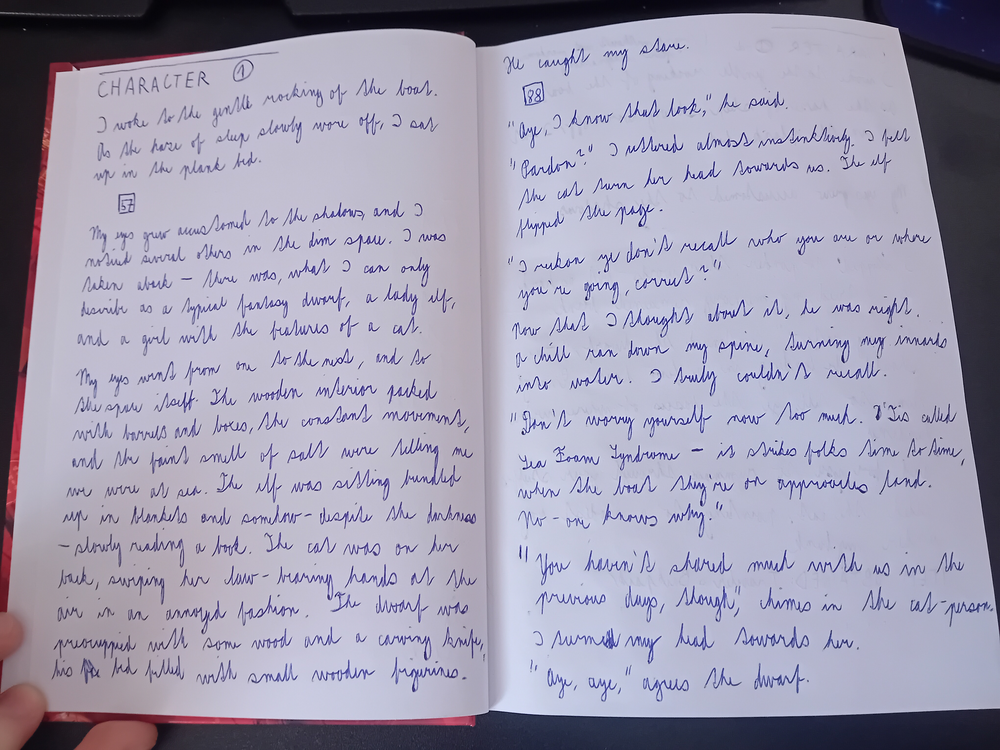 CHARACTER 1
I woke to the gentle rocking of the boat.
As the haze of sleep slowly wore off, I sat
up in the plank bed.
57
My eyes grew accustomed to the shadows, and I
noticed several others in the dim space. I was
taken aback – there was, what I can only
describe as a typical fantasy dwarf, a lady elf,
and a girl with the features of a cat.
My eyes went from one to the next, and to
the space itself. The wooden interior packed
with barrels and boxes, the constant movement,
and the faint smell of salt were telling me
we were at sea. The elf was sitting bundled
up in blankets and somehow – despite the darkness
– slowly reading a book. The cat was on her
back, swiping her claw-bearing hands at the
air in an annoyed fashion. The dwarf was
preoccupied with some wood and a carving knife,
his bed filled with small wooden figurines.
He caught my stare.
88
"Aye, I know that look," he said.
"Pardon?" I uttered almost instinctively. I felt
the cat turn her head towards us. The elf
flipped the page.
"I reckon ye don't recall who you are or where
you're going, correct?"
Now that I thought about it, he was right.
A chill ran down my spine, turning my innards
into water. I truly couldn't recall.
"Don't worry yourself now too much. 'Tis called
Sea Foam Syndrome – it strikes folks time to time,
when the boat they're on approaches land.
No-one knows why."
"You haven't shared much with us in the
previous days, though", chimes in the cat-person.
I turned my head towards her.
"Aye, aye," agrees the dwarf.